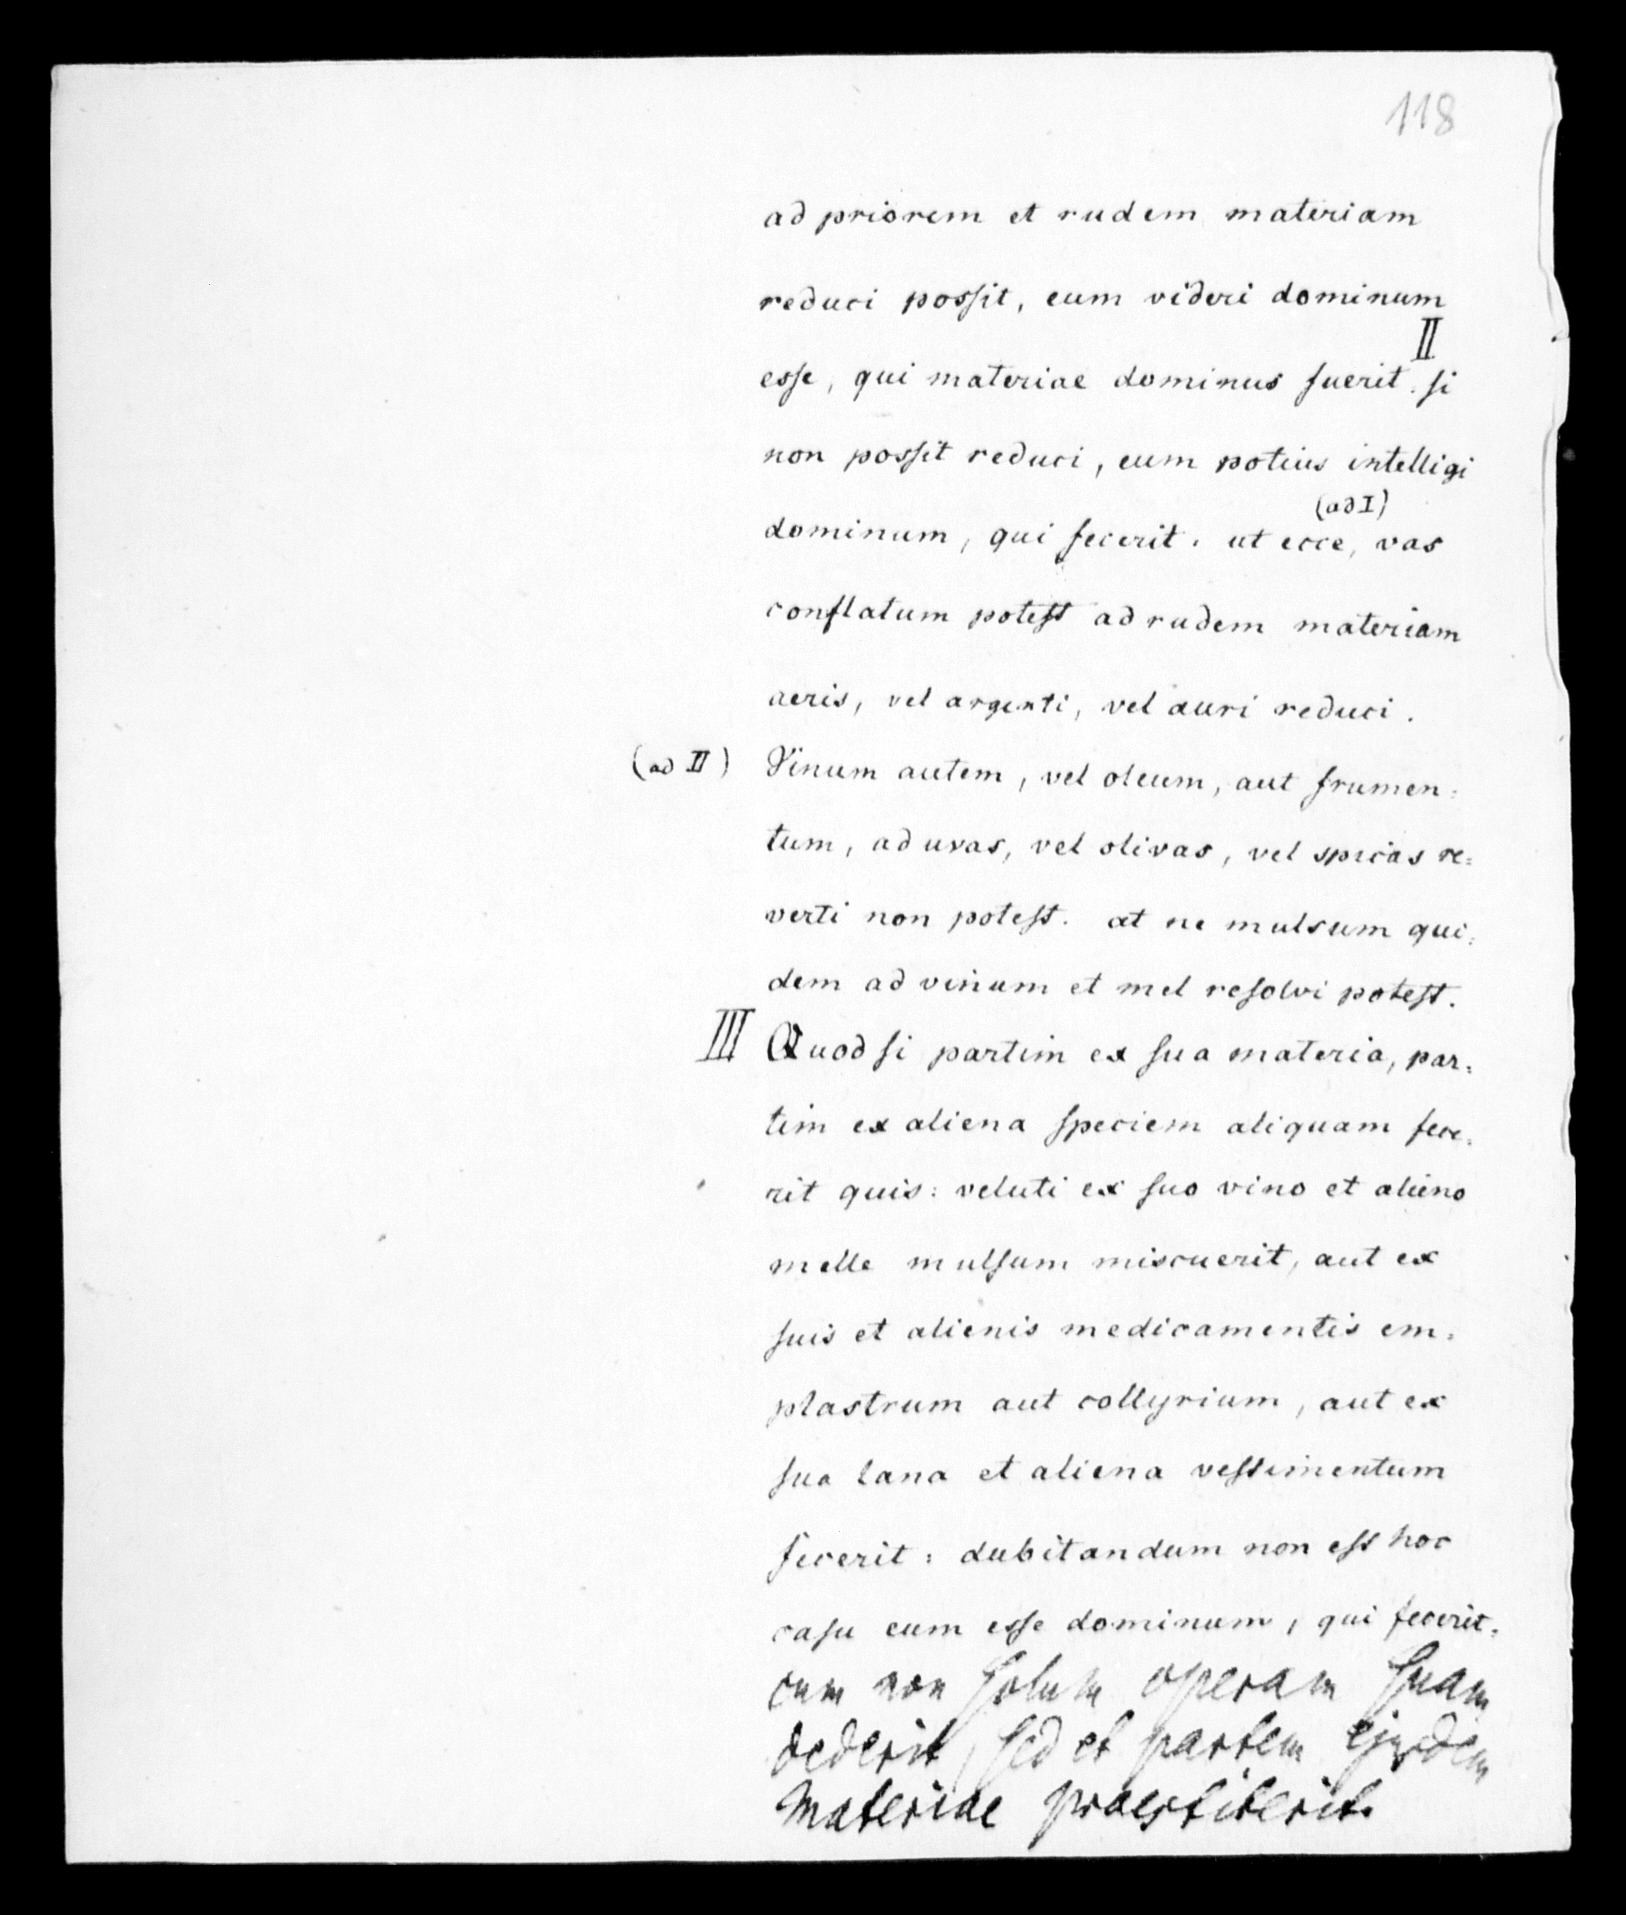 118
ad priorem et rudem materiam
reduci possit, eum videri dominum
II
esse, qui materiae dominus fuerit. si
non possit reduci, eum potius intelligi
(ad I)
dominum, qui fecerit. ut ecce, vas
conflatum potest ad rudem materiam
aeris, vel argenti, vel auri reduci.
(ad II) Vinum autem, vel oleum, aut frumen=
tum, ad uvas, vel olivas, vel spicas re=
verti non potest. at ne mulsum qui=
dem ad vinum et mel resolvi potest.
III Quod si partim ex sua materia, par=
tim ex aliena speciem aliquam fece=
rit quis: veluti ex suo vino et alieno
melle mulsum miscuerit, aut ex
suis et alienis medicamentis em=
plastrum aut collyrium, aut ex
sua lana et aliena vestimentum
fecerit: dubitandum non est hoc
casu eum esse dominum, qui fecerit.
cum non solum operam suam
dederit, sed et partem ejusdem
materiae praestiterit.